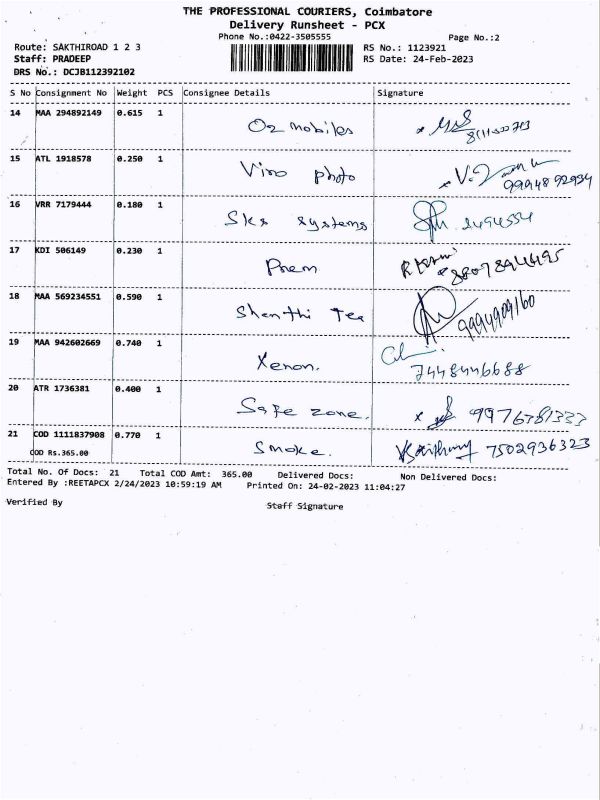 THE PROFESSIONAL COURIERS, Coimbatore
Delivery Runsheet - PCX
Phone No.:0422-3505555 Page No.:2
Route: SAKTHIROAD 1 2 3 RS No.: 1123921
Staff: PRADEEP RS Date: 24-Feb-2023
DRS No.: DCJB112392102
S No Consignment No Weight PCS Consignee Details Signature
14 MAA 294892149 0.615 1 O2 mobiles
15 ATL 1918578 0.250 1 Vino photo 9994892934
16 VRR 7179444 0.180 1 Sks systems
17 KDI 506149 0.230 1 Prem 8807894495
18 MAA 569234551 0.590 1 Shanthi Tea 9994909160
19 MAA 942602669 0.740 1 Xenon. 7448446688
20 ATR 1736381 0.400 1 Safe zone. x
21 COD 1111837908 0.770 1 Smoke. 7502936323
COD Rs.365.00
Total No. Of Docs: 21 Total COD Amt: 365.00 Delivered Docs: Non Delivered Docs:
Entered By :REETAPCX 2/24/2023 10:59:19 AM Printed On: 24-02-2023 11:04:27
Verified By Staff Signature